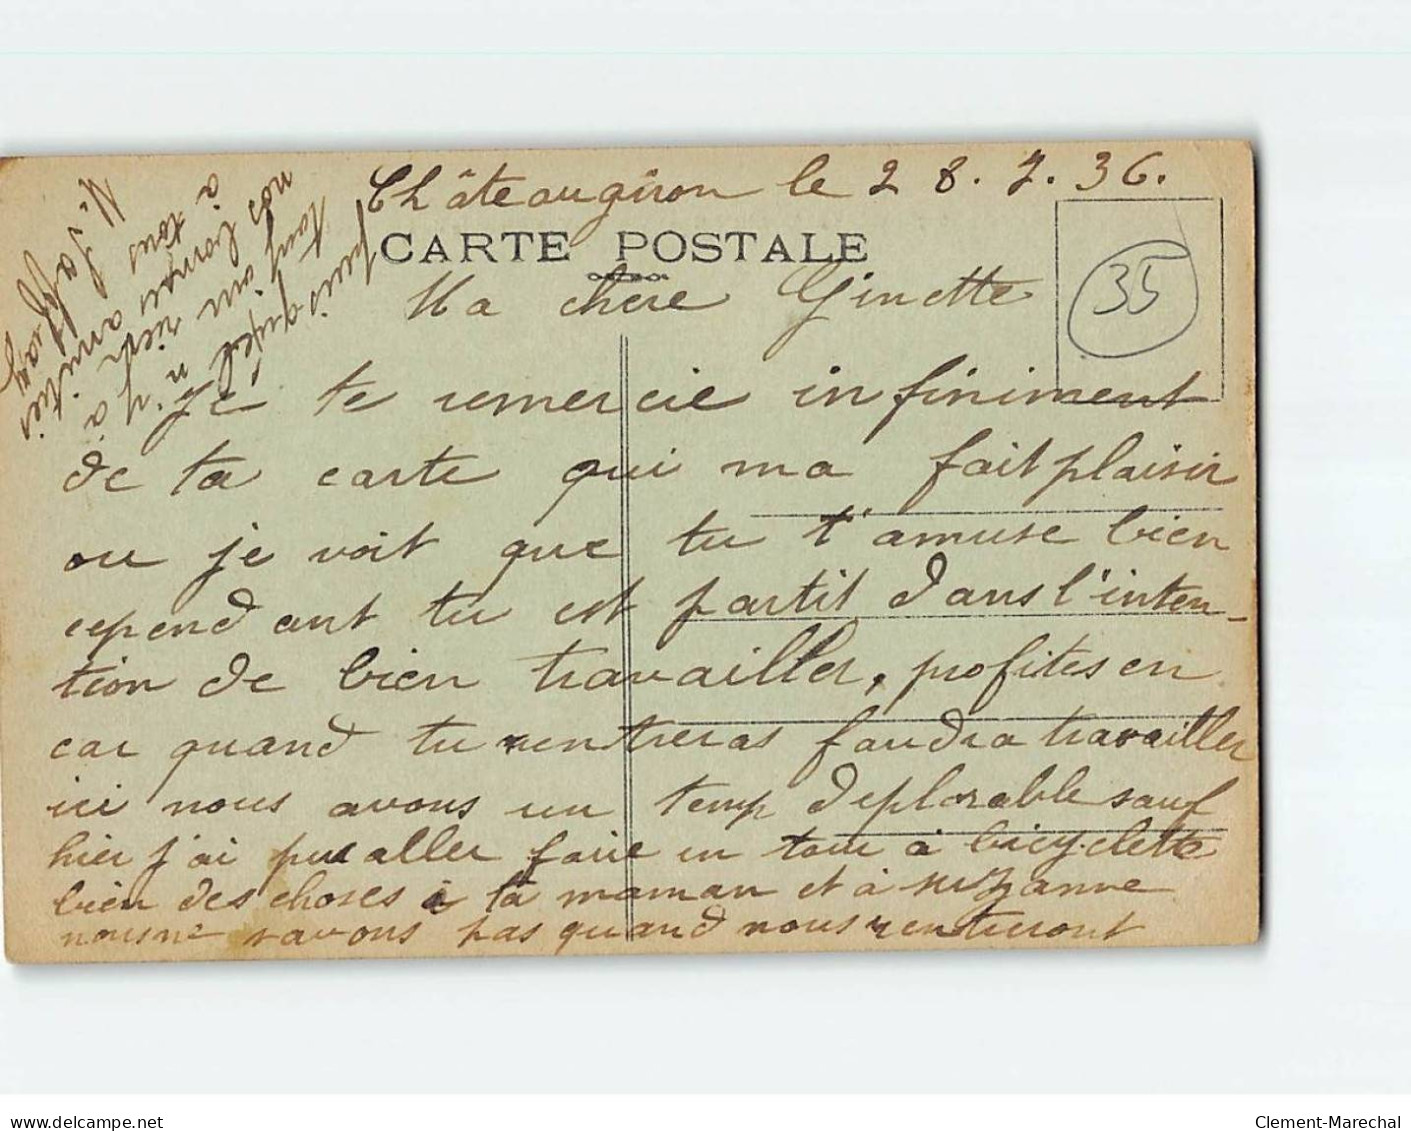 Châteaugiron le 28.7.36.
CARTE POSTALE
35
Ma chere Ginette
Je te remercie infiniment
de ta carte qui ma fait plaisir
ou je voit que tu t'amuse bien
cependant tu est partit dans l'inten-
tion de bien travailler, profites en
car quand tu rentreras faudra travailler
ici nous avons un temp déplorable sauf
hier j'ai pu aller faire un tour à bicyclette
bien des choses à ta maman et à suzanne
nous ne savons pas quand nous rentreront
puisqu'il n'y a
rien
nos bonnes amitiés
à tous
delcampe.net
Clement-Marechal